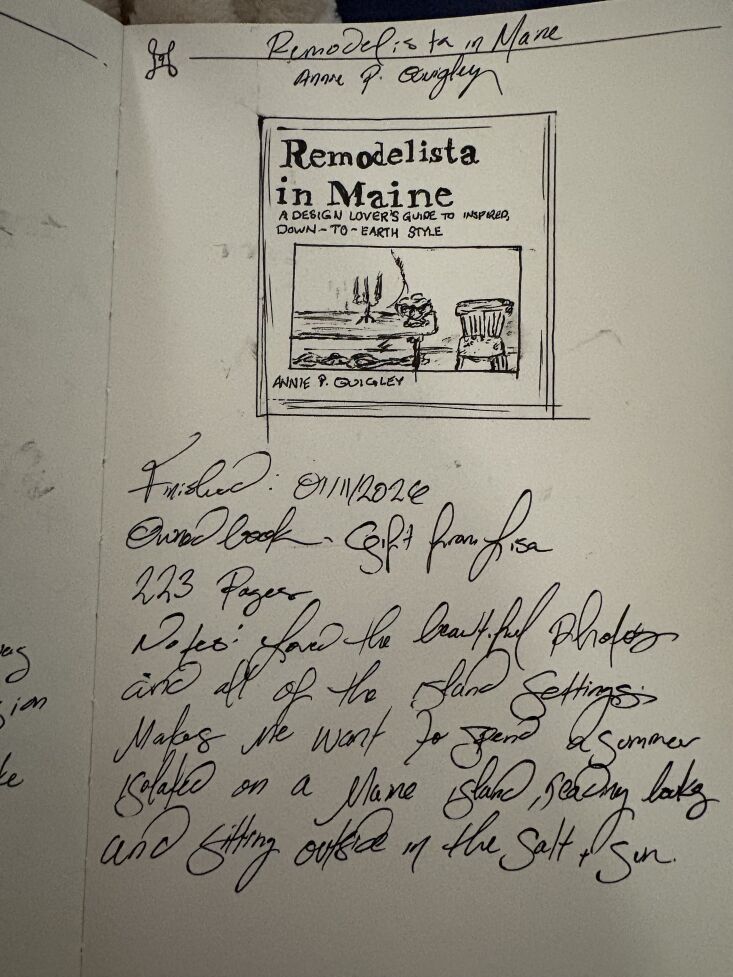 Remodelista in Maine
Annie P. Quigley
Remodelista
in Maine
A DESIGN LOVER'S GUIDE TO INSPIRED,
DOWN-TO-EARTH STYLE
ANNIE P. QUIGLEY
Finished: 01/11/2026
Owned book - Gift from Lisa
223 Pages
Notes: Loved the beautiful photos
and all of the island settings.
Makes me want to spend a summer
isolated on a Maine island, reading books
and sitting outside in the salt + sun.
ion